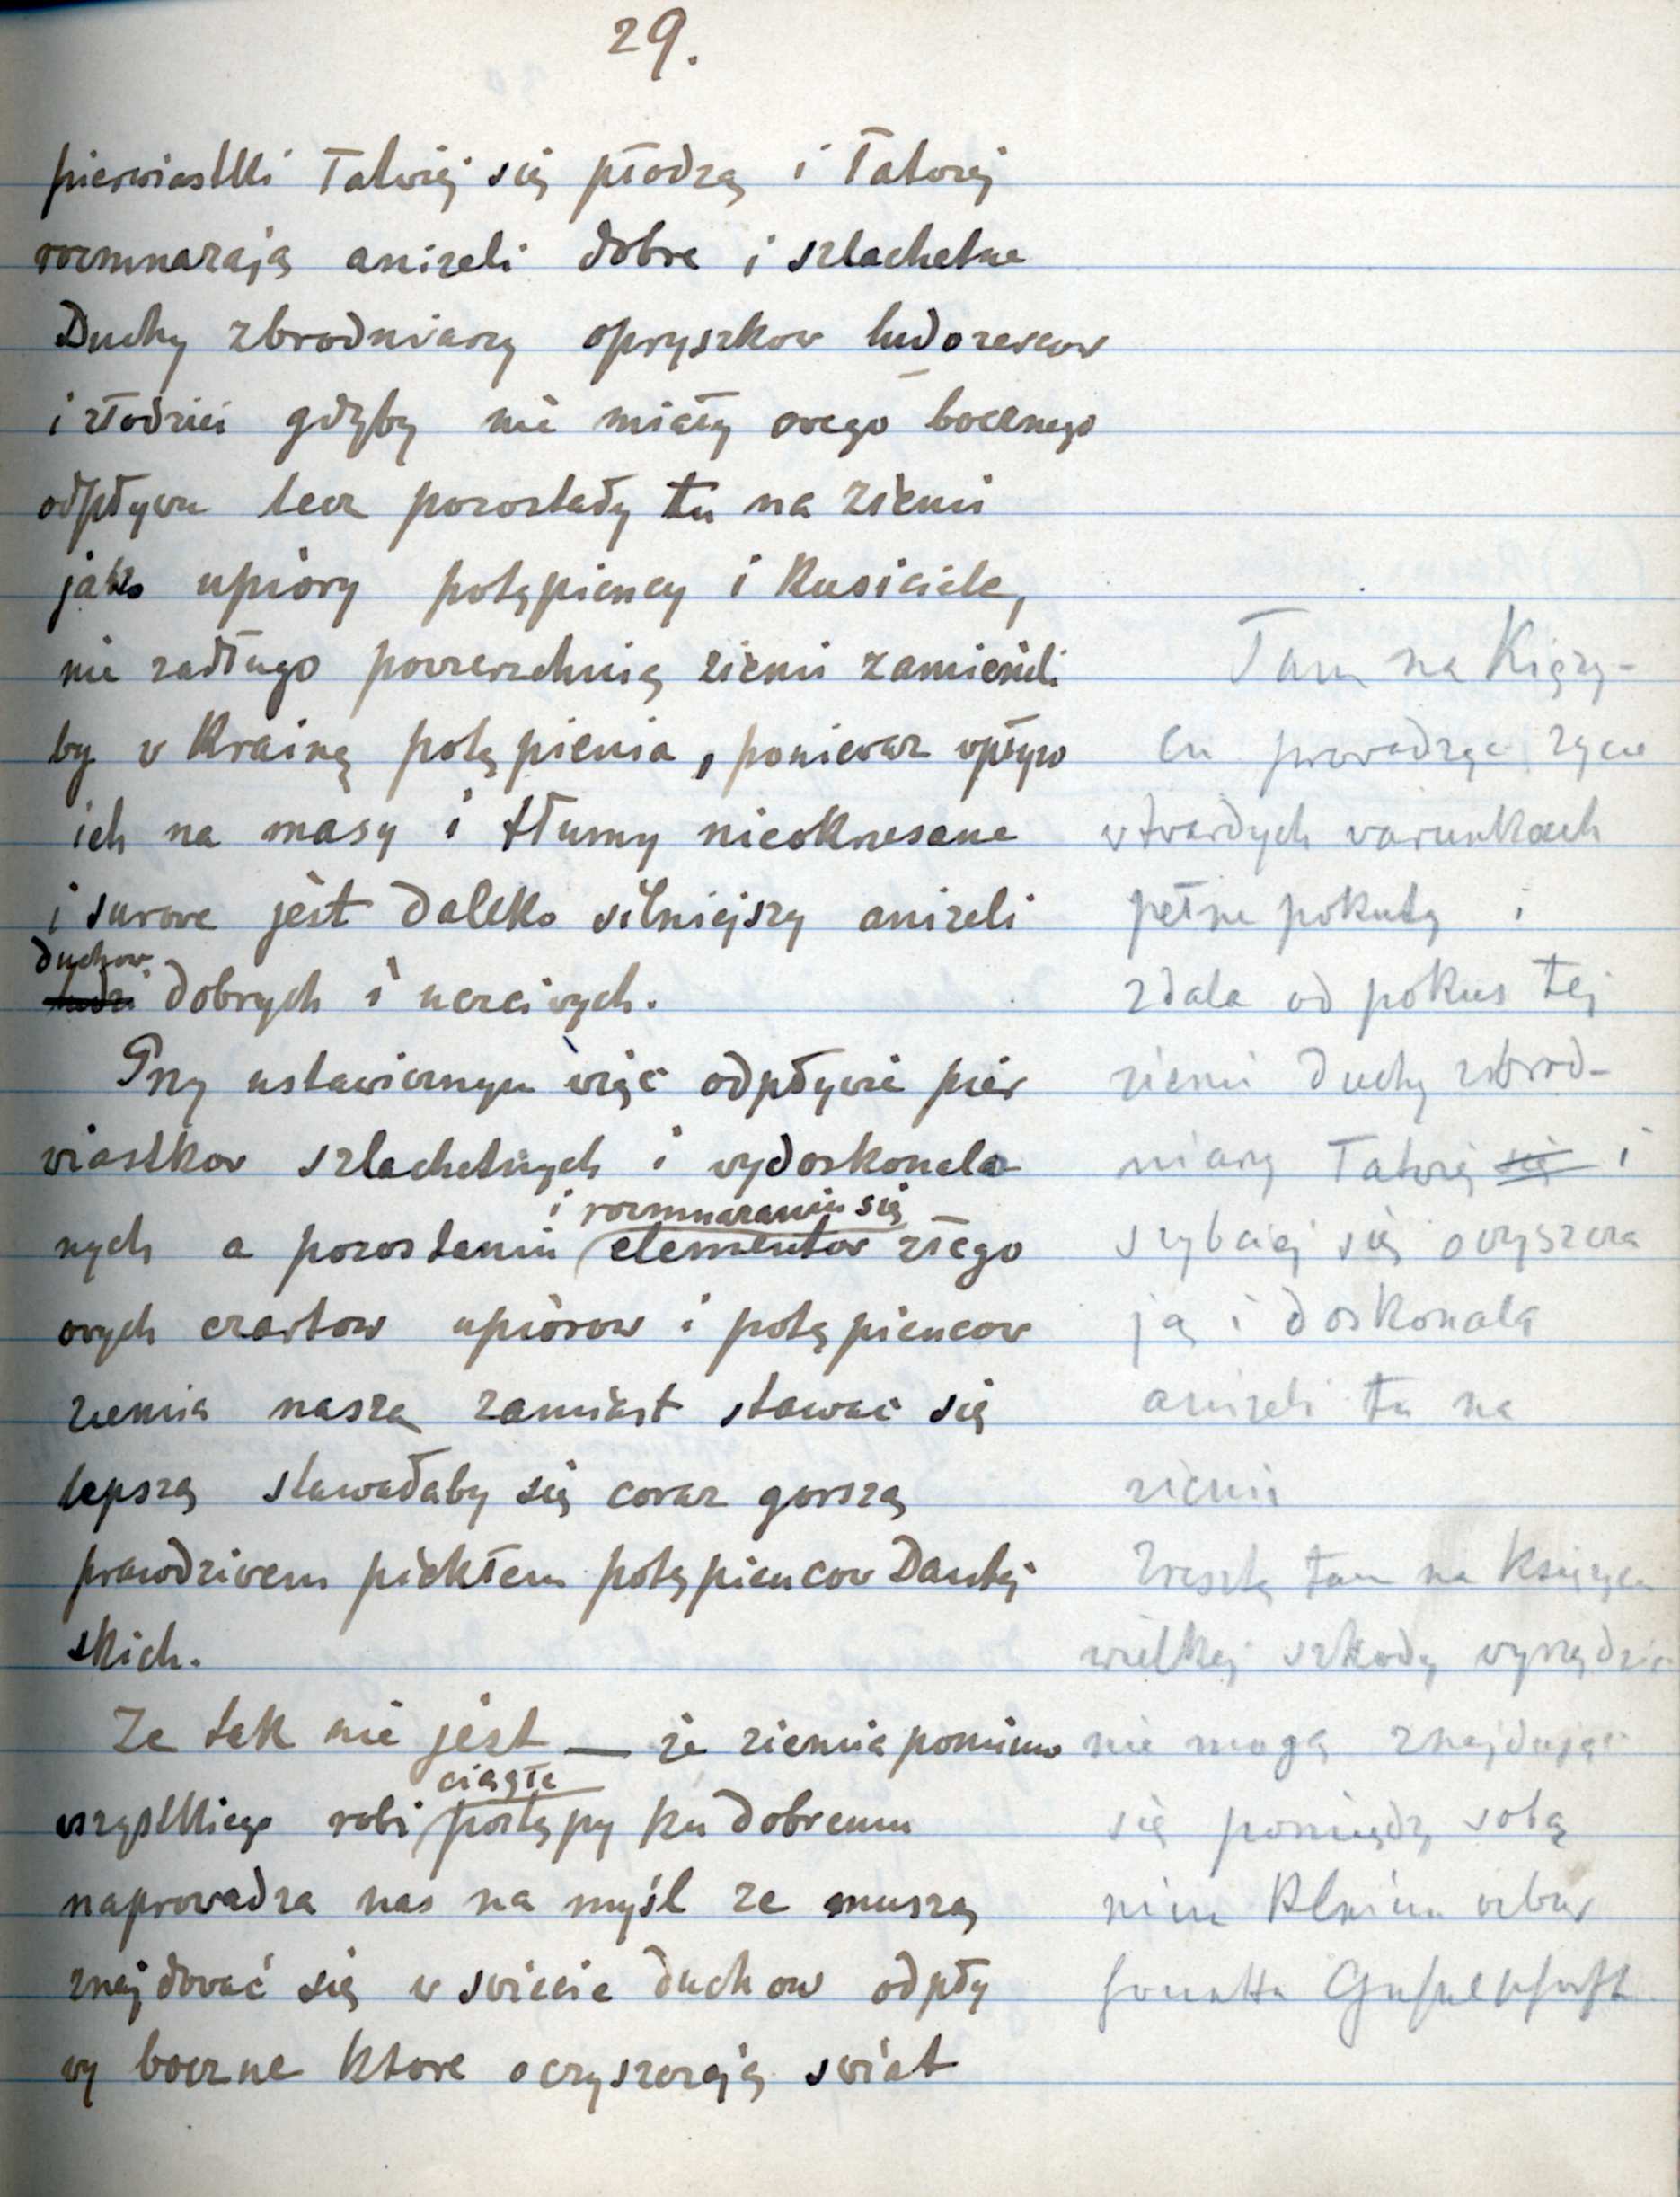 29.
pierwiastki łatwiej się płodzą i łatwiej
rozmnazają anizeli dobre i szlachetne
Duchy zbrodniarzy opryszkow ludozercow
i złodziei gdyby nie miały owego bocznego
odpływu lecz pozostały tu na ziemi
jako upiory potępiency i Kusiciele,
nie zadługo powierzchnią ziemi zamienili
by w Krainę potępienia, poniewaz wpływ
ich na masy i tłumy nieokrzesane
i surowe jest daleko silniejszy anizeli
duchow
ludzi dobrych i uczciwych.
Przy ustawicznym więc odpływie pier
wiastkow szlachetnych i wydoskonalo
i rozmnazaniu się
nych a pozostaniu elementow złego
owych czartow upiorow i potępiencow
ziemia nasza zamiast stawać się
lepszą stawałaby się coraz gorszą
prawdziwem piekłem potępiencow Dantej
skich.
Ze tak nie jest — ze ziemia pomimo
ciągłe
wszystkiego robi postępy ku dobremu
naprowadza nas na myśl ze muszą
znajdować się w swiecie duchow odpły
wy boczne ktore oczyszczają swiat
Tam na Księzy-
cu prowadząc zycie
w twardych warunkach
pełne pokuty i
zdala od pokus tej
ziemi duchy zbrod-
niarzy łatwiej się i
szybciej się oczyszcza
ją i doskonalą
anizeli tu na
ziemi
Zresztą tam na Księzycu
wielkiej szkody wyrządzić
nie mogą znajdując
się pomiędzy sobą